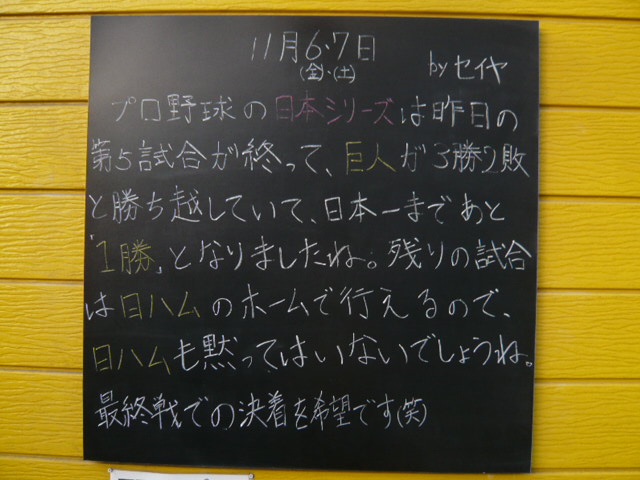 11月6・7日
(金)・(土)
byセイヤ
プロ野球の日本シリーズは昨日の
第5試合が終って、巨人が3勝2敗
と勝ち越していて、日本一まであと
「1勝」となりましたね。残りの試合
は日ハムのホームで行えるので、
日ハムも黙ってはいないでしょうね。
最終戦での決着を希望です(笑)